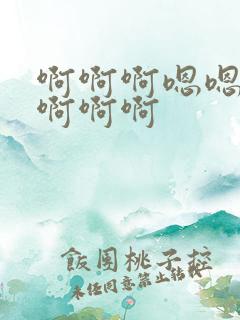 啊啊啊嗯嗯
啊啊啊
飯團桃子控
未任同意禁止转载